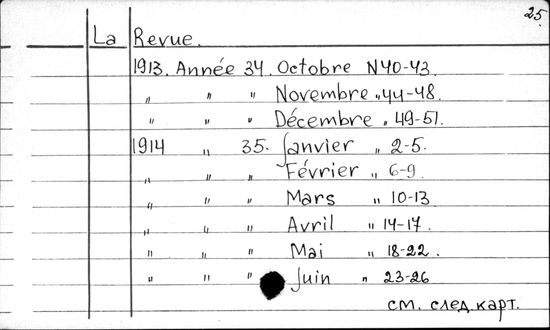 25.
La Revue.
1913. Année 34. Octobre N40-43.
„ „ „ Novembre „ 44-48.
„ „ „ Décembre „ 49-51.
1914 „ 35. Janvier „ 2-5.
„ „ „ Février „ 6-9.
„ „ „ Mars „ 10-13
„ „ „ Avril „ 14-17.
„ „ „ Mai „ 18-22.
„ „ „ Juin „ 23-26
см. след. карт.